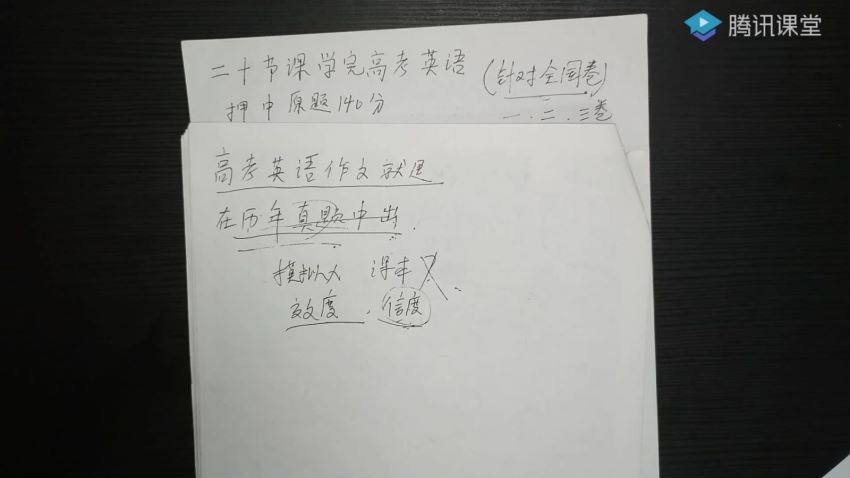 腾讯课堂
二十节课学完高考英语
(针对全国卷)
押中原题140分
一、二、三卷
高考英语作文就是
在历年真题中出.
模拟 课本
效度、信度